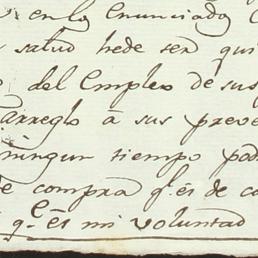 en lo enunciado
salud hede ser qui
del Empleo de sus
arreglo a sus preve
ningun tiempo pod
de compra q.e es de ca
q.e es mi voluntad